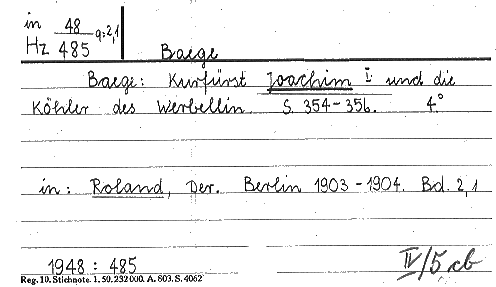 in 48 q:2,1
Hz 485 Baege
Baege: Kurfürst Joachim I. und die
Köhler des Werbellin S. 354-356. 4°
in: Roland, Der. Berlin 1903-1904. Bd. 2,1
1948 : 485 IV/5 cb
Reg. 10. Stichnote. 1. 50. 232000. A. 803. S. 4062